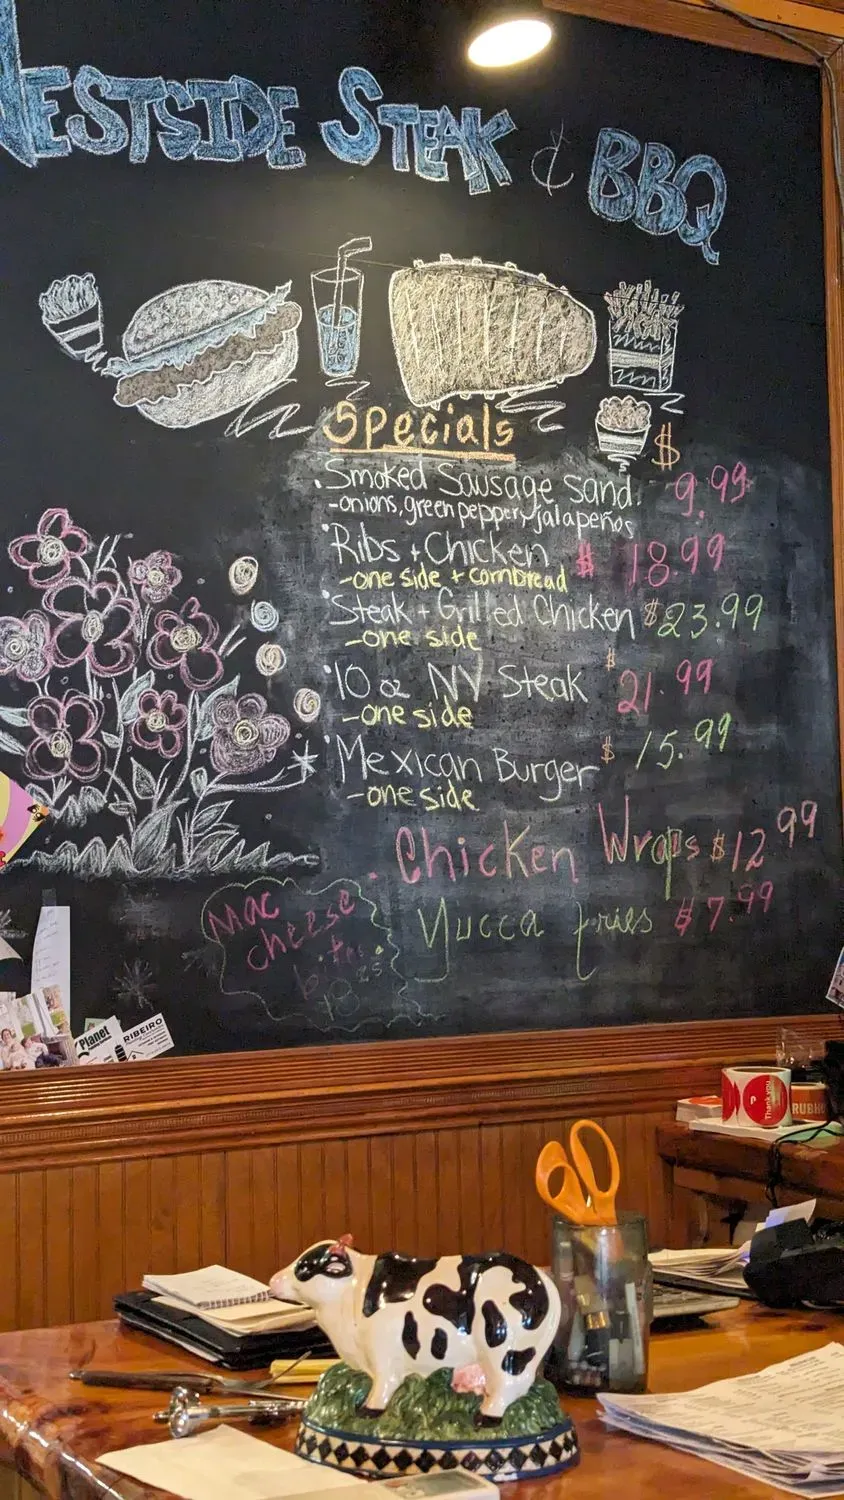 WESTSIDE STEAK & BBQ
Specials
$
• Smoked Sausage Sand. 9.99
- onions, green peppers, jalapeños
• Ribs + Chicken $ 18.99
- one side + cornbread
• Steak + Grilled Chicken $23.99
- one side
• 10 oz NY Steak $ 21.99
- one side
• Mexican Burger $ 15.99
- one side
• Chicken Wraps $12.99
Yucca fries $7.99
Mac
cheese
bites
Planet
RIBEIRO
Thank you